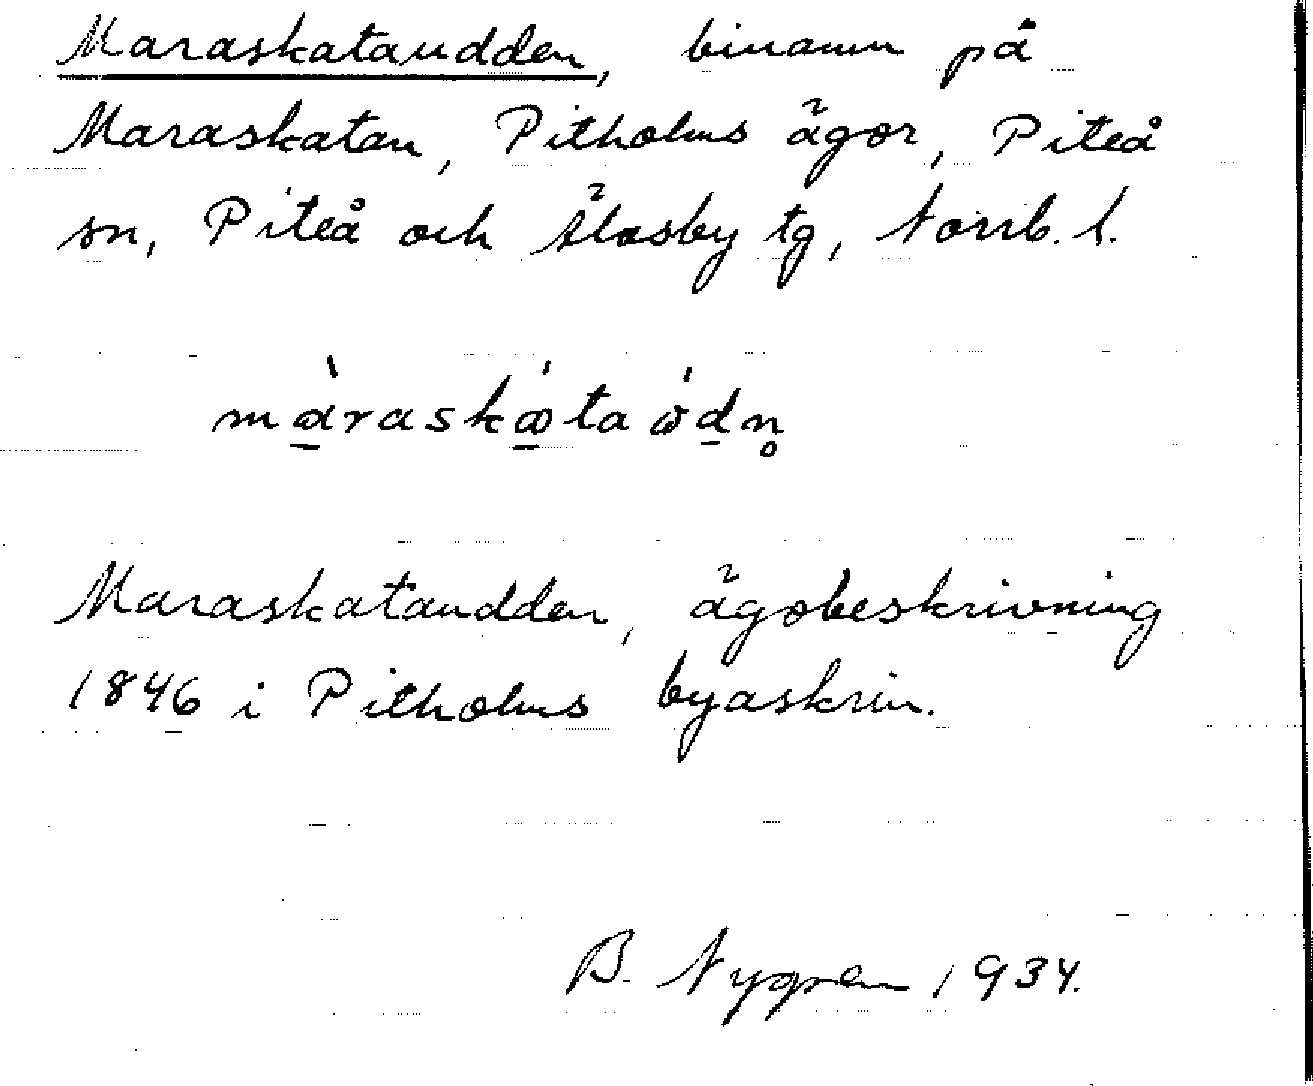 Maraskataudden, binamn på
Maraskatan, Pitholms ägor, Piteå
sn, Piteå och Älvsby tg, Norrb. l.
Maraskataudden, ägobeskrivning
1846 i Pitholms byaskrin.
B. Nygren 1934.